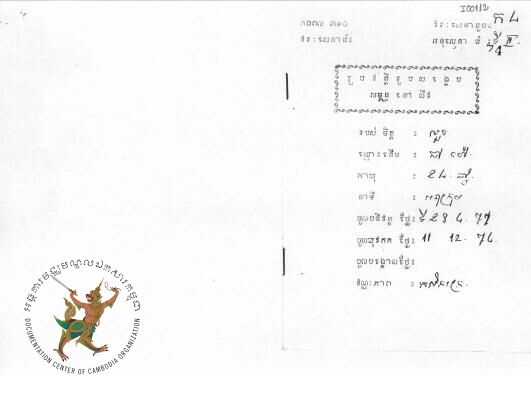 I00112
កងពល ៣១០
វរៈសេនាតូច ក ៤
វរៈសេនាធំ
អនុសេនាធំ ទី
ប្រវត្តិរូបសង្ខេប
សម្គួន នៅ លីវ
របស់ មិត្ត : សួន
ឈ្មោះដើម :
អាយុ : 24 ឆ្នាំ
នាទី :
ចូលបដិវត្ត ថ្ងៃ: ទី 28 4. 74
ចូលយុវកក ថ្ងៃ: 11. 12. 74.
ចូលបង្គោលថ្ងៃ:
វណ្ណៈភាព : កសិករ
អង្គការមជ្ឈមណ្ឌលឯកសារកម្ពុជា
DOCUMENTATION CENTER OF CAMBODIA ORGANIZATION